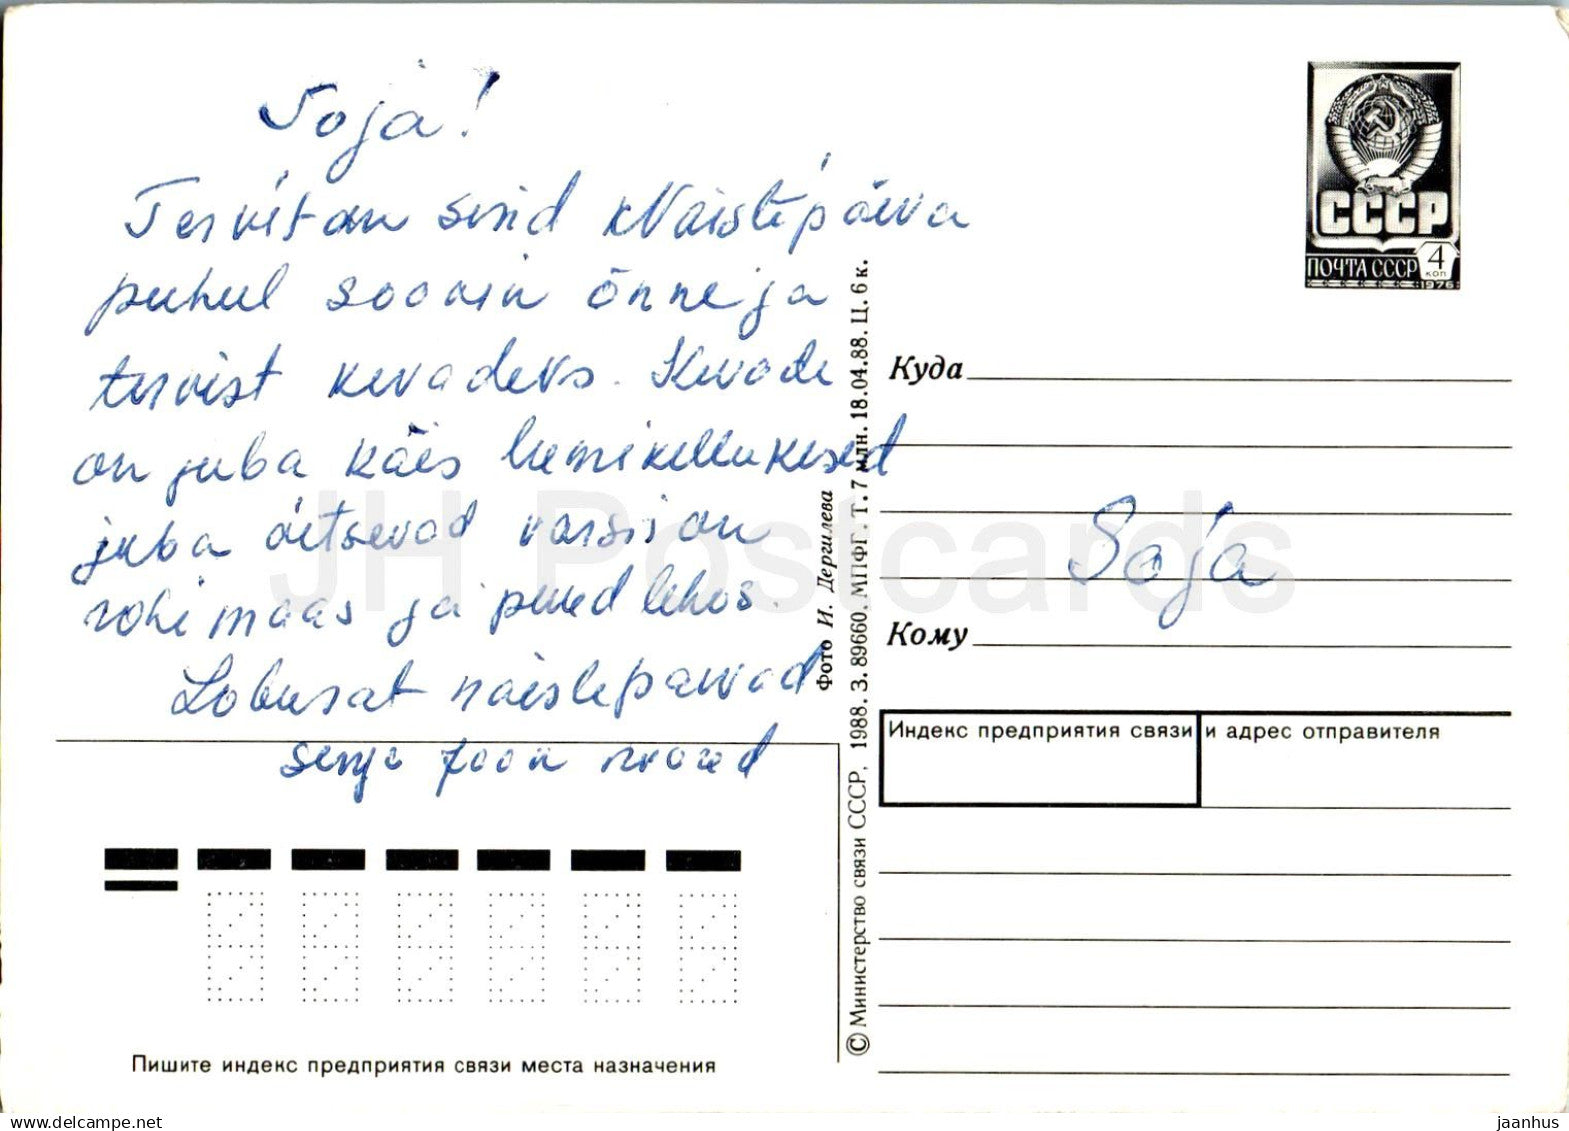 Soja!
Tervitan sind Naistepäeva
puhul soovin õnne ja
tervist kevadeks. Kevade
on juba käes lumikellukesed
juba õitsevad varsi on
rohi maas ja puud lehes.
Lõbusat naistepäeva
Фото И. Дергилева
© Министерство связи СССР, 1988. З. 89660. МПФГ. Т. 7 млн. 18.04.88. Ц. 6 к.
СССР
ПОЧТА СССР 4 коп
1976
Куда
Soja
Кому
Индекс предприятия связи и адрес отправителя
Пишите индекс предприятия связи места назначения
JH Postcards
jaanhus